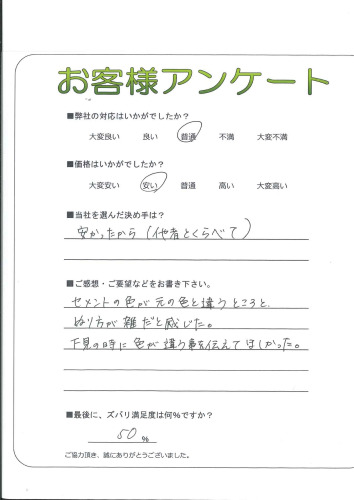 お客様アンケート
■弊社の対応はいかがでしたか?
大変良い 良い 普通 不満 大変不満
■価格はいかがでしたか?
大変安い 安い 普通 高い 大変高い
■当社を選んだ決め手は?
安かったから(他者とくらべて)
■ご感想・ご要望などをお書き下さい。
セメントの色が元の色と違うところと、
ぬり方が雑だと感じた。
下見の時に色が違う事を伝えてほしかった。
■最後に、ズバリ満足度は何%ですか?
50 %
ご協力頂き、誠にありがとうございました。